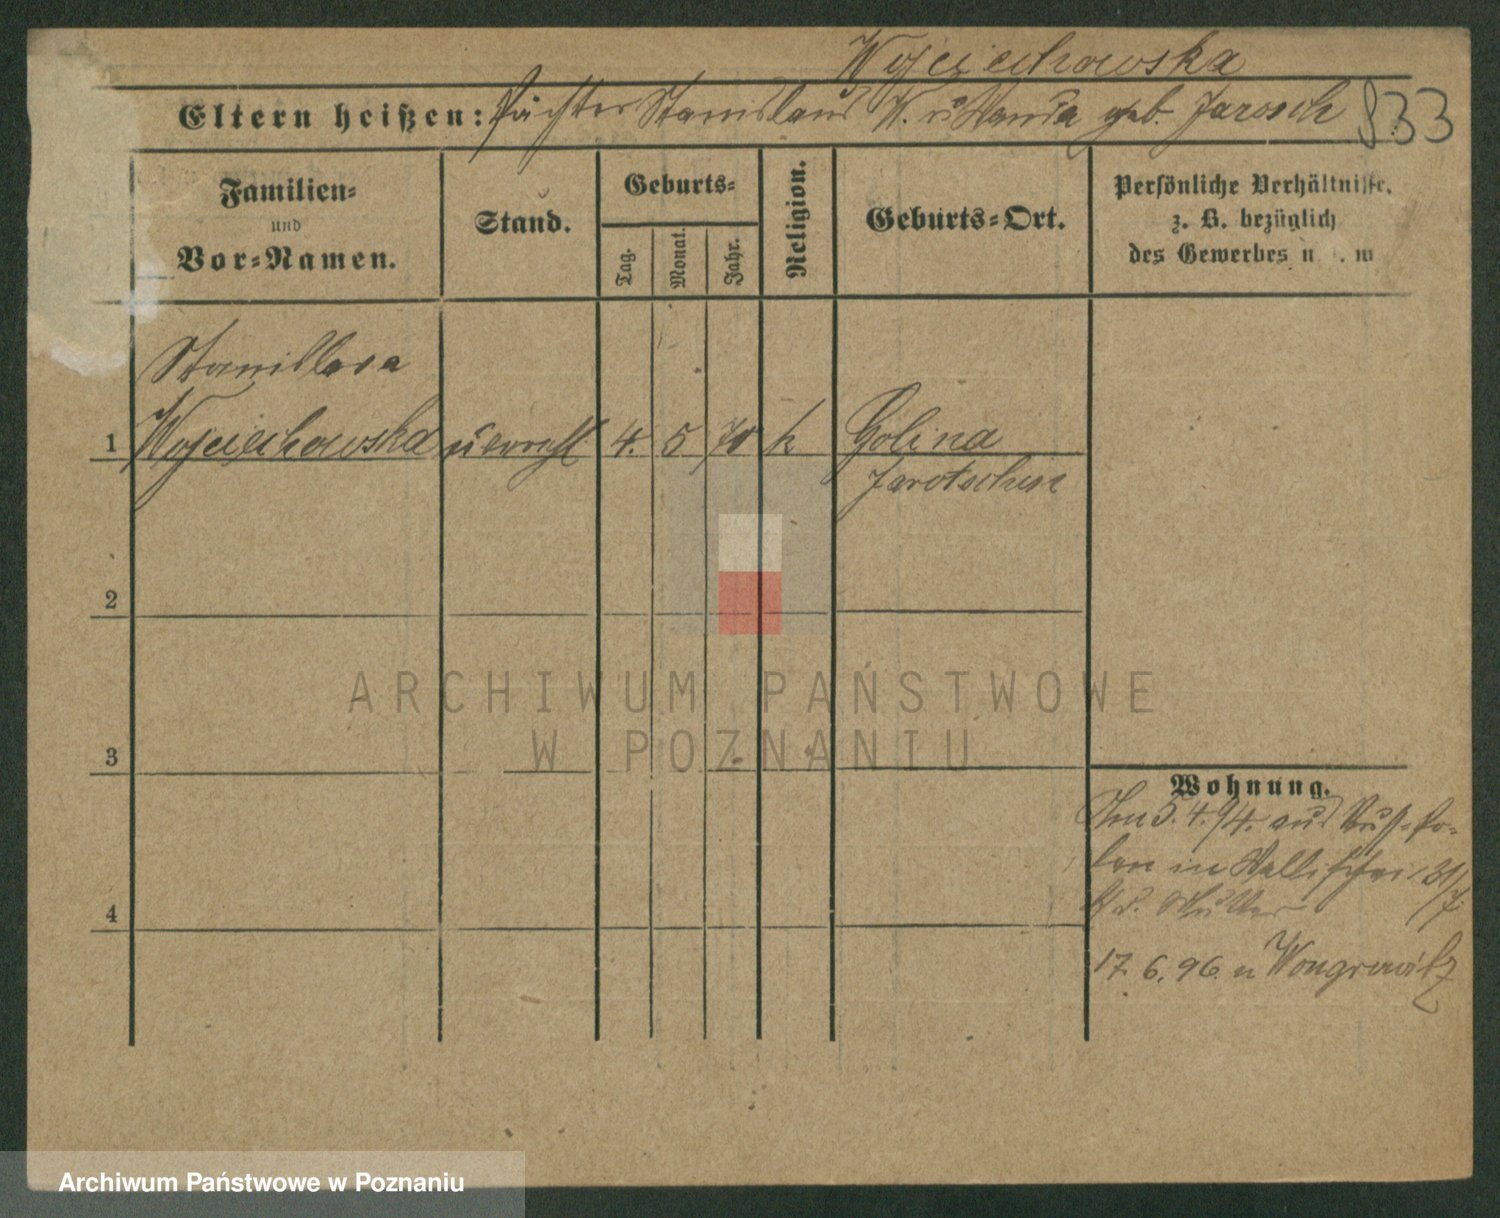 Wojciechowska
Eltern heißen: Pächter Stanislaus W. u. Wanda geb. Jarosch 833
Familien-
und
Vor-Namen.
Stand.
Geburts-
Tag.
Monat.
Jahr.
Religion.
Geburts-Ort.
Persönliche Verhältnisse,
z. B. bezüglich
des Gewerbes u. s. w
Stanislava
1 Wojciechowska unverehl 4. 5 70 k Golina
Jarotschin
2
3
4
ARCHIWUM PAŃSTWOWE
W POZNANIU
Wohnung.
5.4.94. aus Russ. Po-
len in Wallischei 31/7
b. d. Mutter
17.6.96. n Wongrowitz
Archiwum Państwowe w Poznaniu